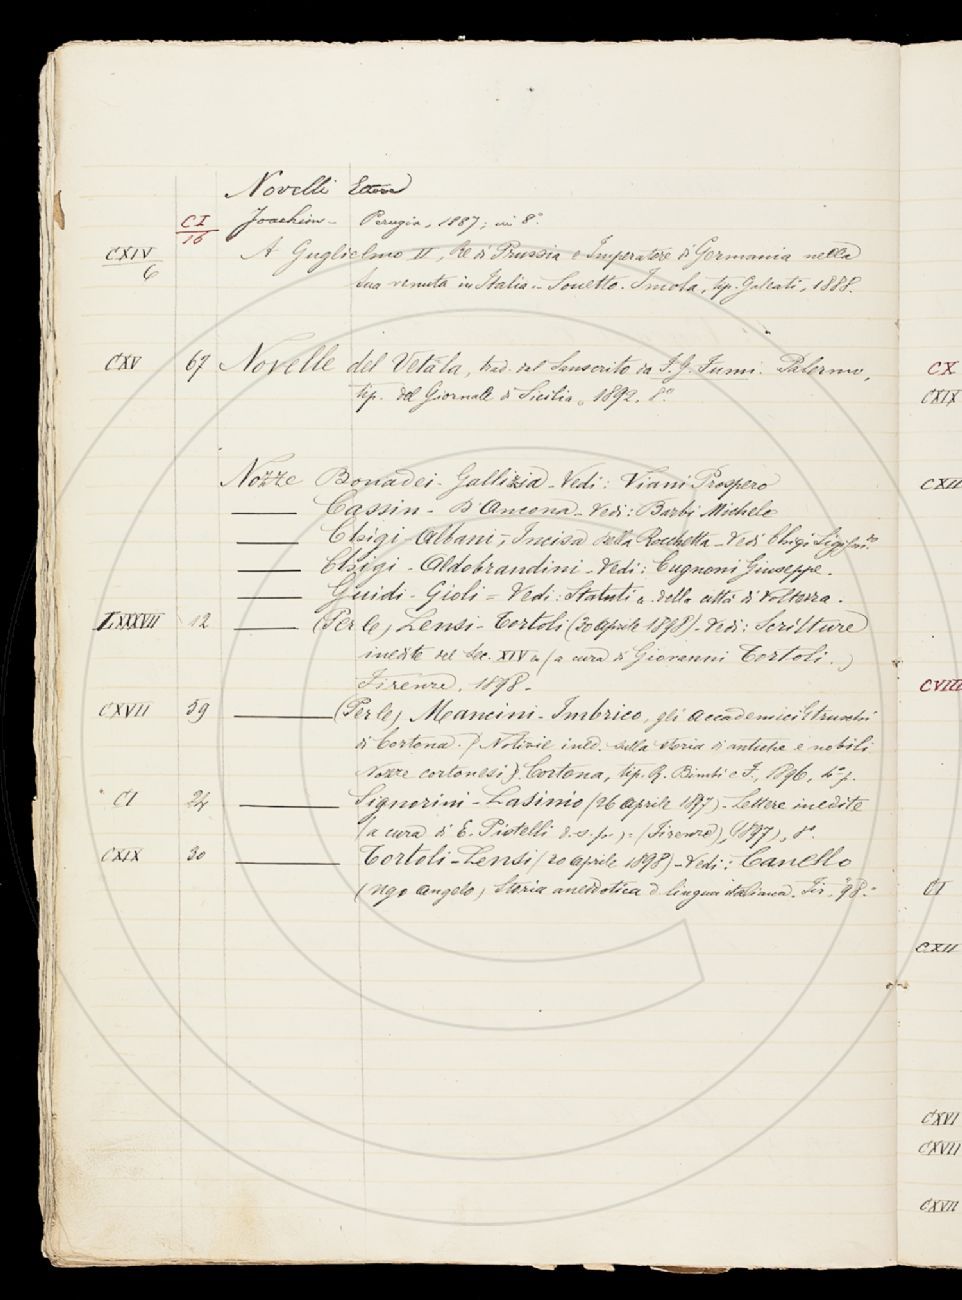 Novelli Ettore
CI/16 Joachim - Perugia, 1887; in 8°
CXIV/6 A Guglielmo II, Re di Prussia e Imperatore di Germania nella
sua venuta in Italia - Sonetto - Imola, tip. Galeati, 1888.
CXV 67 Novelle del Vetâla, trad. dal Sanscrito da F. G. Fumi. Palermo,
tip. del Giornale di Sicilia, 1892. 8°
Nozze Bonadei - Gallizia - Vedi: Viani Prospero
Cassin - D'Ancona - Vedi: Barbi Michele
Chigi - Albani, - Incisa della Rocchetta - Vedi Chigi
Chigi - Aldobrandini - Vedi: Cugnoni Giuseppe.
Guidi - Gioli = Vedi: Statuti della città di Volterra.
LXXXVII 12 (Per le) Lensi - Tortoli (30 aprile 1898) - Vedi: Scritture
inedite del Sec. XIV (a cura di Giovanni Tortoli.)
Firenze, 1898.
CXVII 59 (Per le) Mancini - Imbrico, gli accademici Etruschi
di Cortona. (Notizie ined. sulla storia di antiche e nobili
Nozze cortonesi). Cortona, tip. R. Bimbi e F., 1896, 4° p.
CI 24 Signorini - Lasinio (26 Aprile 1897) - Lettere inedite
(a cura di E. Pistelli d. s. p.) - (Firenze), (1897), 8°.
CXIX 30 Tortoli - Lensi (20 aprile 1898) - Vedi: Canello
(Ugo Angelo) Storia aneddotica d lingua italiana. Fir. '98.
CX
CXIX
CXII
CVIII
CI
CXII
CXVI
CXVII
CXVII